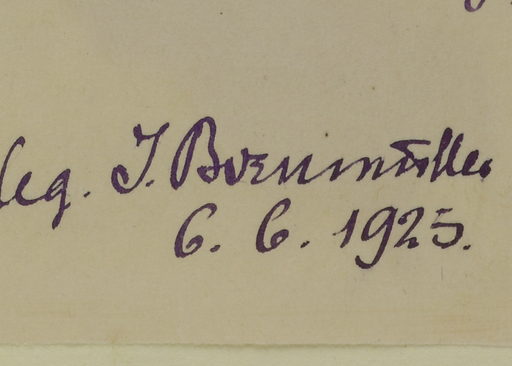 leg. J. Bornmüller
6. 6. 1925.